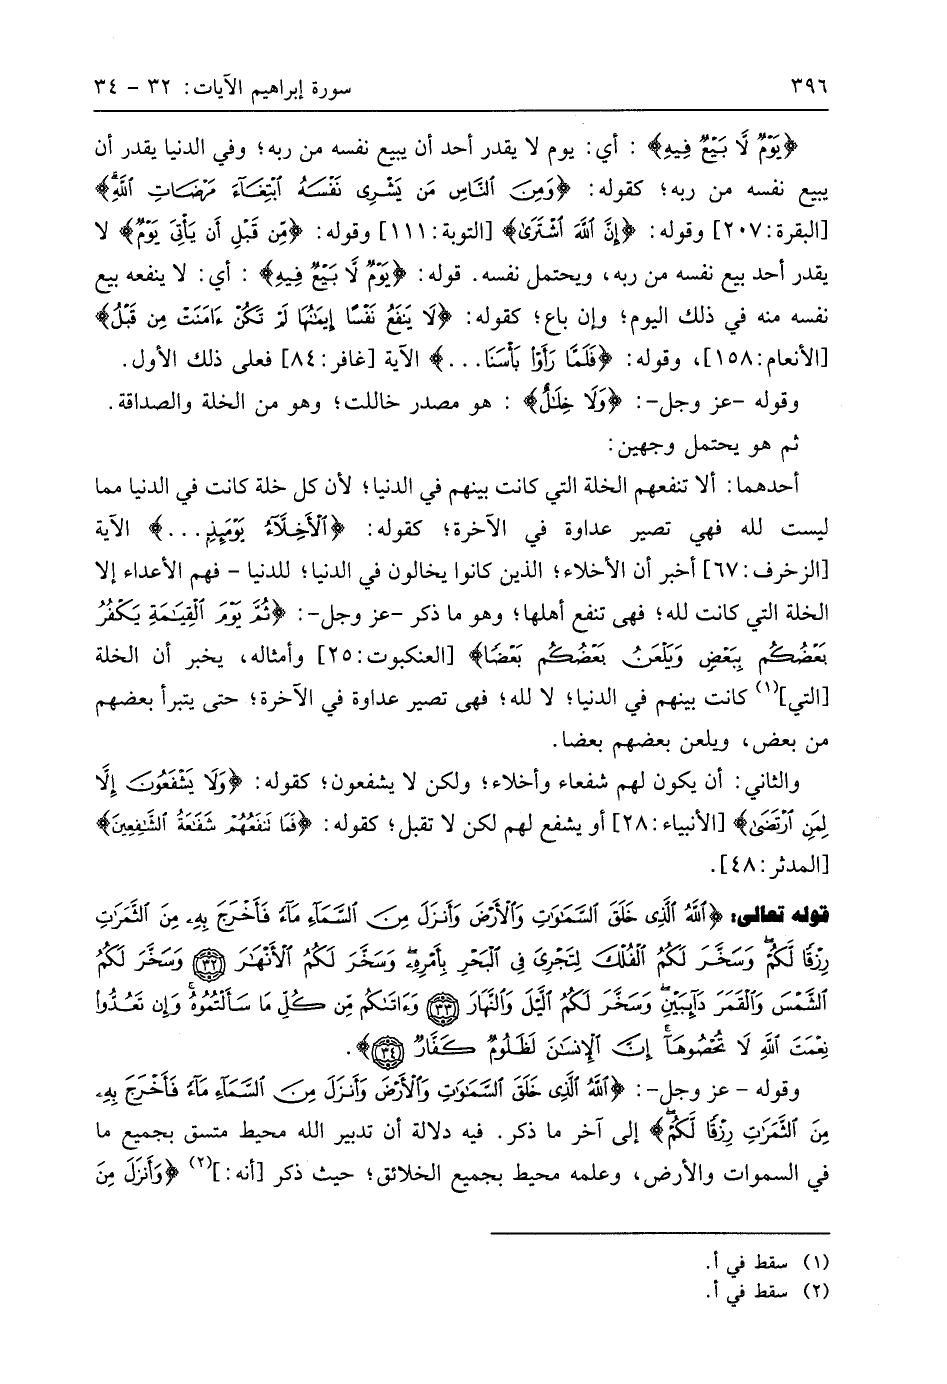 ٣٩٦ سورة إبراهيم الآيات: ٣٢ - ٣٤
﴿يَوْمٌ لَّا بَيْعٌ فِيهِ﴾ : أي: يوم لا يقدر أحد أن يبيع نفسه من ربه؛ وفي الدنيا يقدر أن
يبيع نفسه من ربه؛ كقوله: ﴿وَمِنَ ٱلنَّاسِ مَن يَشْرِى نَفْسَهُ ٱبْتِغَآءَ مَرْضَاتِ ٱللَّهِۗ﴾
[البقرة:٢٠٧] وقوله: ﴿إِنَّ ٱللَّهَ ٱشْتَرَىٰ﴾ [التوبة:١١١] وقوله: ﴿مِّن قَبْلِ أَن يَأْتِىَ يَوْمٌ﴾ لا
يقدر أحد بيع نفسه من ربه، ويحتمل نفسه. قوله: ﴿يَوْمٌ لَّا بَيْعٌ فِيهِ﴾ : أي: لا ينفعه بيع
نفسه منه في ذلك اليوم؛ وإن باع؛ كقوله: ﴿لَا يَنفَعُ نَفْسًا إِيمَٰنُهَا لَمْ تَكُنْ ءَامَنَتْ مِن قَبْلُ﴾
[الأنعام:١٥٨]، وقوله: ﴿فَلَمَّا رَأَوْا۟ بَأْسَنَا...﴾ الآية [غافر:٨٤] فعلى ذلك الأول.
وقوله -عز وجل-: ﴿وَلَا خِلَٰلٌ﴾ : هو مصدر خاللت؛ وهو من الخلة والصداقة.
ثم هو يحتمل وجهين:
أحدهما: ألا تنفعهم الخلة التي كانت بينهم في الدنيا؛ لأن كل خلة كانت في الدنيا مما
ليست لله فهي تصير عداوة في الآخرة؛ كقوله: ﴿ٱلْأَخِلَّآءُ يَوْمَئِذٍ...﴾ الآية
[الزخرف:٦٧] أخبر أن الأخلاء؛ الذين كانوا يخالون في الدنيا؛ للدنيا - فهم الأعداء إلا
الخلة التي كانت لله؛ فهى تنفع أهلها؛ وهو ما ذكر -عز وجل-: ﴿ثُمَّ يَوْمَ ٱلْقِيَٰمَةِ يَكْفُرُ
بَعْضُكُم بِبَعْضٍ وَيَلْعَنُ بَعْضُكُم بَعْضًا﴾ [العنكبوت:٢٥] وأمثاله، يخبر أن الخلة
[التي](١) كانت بينهم في الدنيا؛ لا لله؛ فهى تصير عداوة في الآخرة؛ حتى يتبرأ بعضهم
من بعض، ويلعن بعضهم بعضا.
والثاني: أن يكون لهم شفعاء وأخلاء؛ ولكن لا يشفعون؛ كقوله: ﴿وَلَا يَشْفَعُونَ إِلَّا
لِمَنِ ٱرْتَضَىٰ﴾ [الأنبياء:٢٨] أو يشفع لهم لكن لا تقبل؛ كقوله: ﴿فَمَا تَنفَعُهُمْ شَفَٰعَةُ ٱلشَّٰفِعِينَ﴾
[المدثر:٤٨].
قوله تعالى: ﴿ٱللَّهُ ٱلَّذِى خَلَقَ ٱلسَّمَٰوَٰتِ وَٱلْأَرْضَ وَأَنزَلَ مِنَ ٱلسَّمَآءِ مَآءً فَأَخْرَجَ بِهِۦ مِنَ ٱلثَّمَرَٰتِ
رِزْقًا لَّكُمْۖ وَسَخَّرَ لَكُمُ ٱلْفُلْكَ لِتَجْرِىَ فِى ٱلْبَحْرِ بِأَمْرِهِۦۖ وَسَخَّرَ لَكُمُ ٱلْأَنْهَٰرَ ﴿٣٢﴾ وَسَخَّرَ لَكُمُ
ٱلشَّمْسَ وَٱلْقَمَرَ دَآئِبَيْنِۖ وَسَخَّرَ لَكُمُ ٱلَّيْلَ وَٱلنَّهَارَ ﴿٣٣﴾ وَءَاتَىٰكُم مِّن كُلِّ مَا سَأَلْتُمُوهُۚ وَإِن تَعُدُّوا۟
نِعْمَتَ ٱللَّهِ لَا تُحْصُوهَآۗ إِنَّ ٱلْإِنسَٰنَ لَظَلُومٌ كَفَّارٌ ﴿٣٤﴾﴾.
وقوله - عز وجل-: ﴿ٱللَّهُ ٱلَّذِى خَلَقَ ٱلسَّمَٰوَٰتِ وَٱلْأَرْضَ وَأَنزَلَ مِنَ ٱلسَّمَآءِ مَآءً فَأَخْرَجَ بِهِۦ
مِنَ ٱلثَّمَرَٰتِ رِزْقًا لَّكُمْۖ﴾ إلى آخر ما ذكر. فيه دلالة أن تدبير الله محيط متسق بجميع ما
في السموات والأرض، وعلمه محيط بجميع الخلائق؛ حيث ذكر [أنه:](٢) ﴿وَأَنزَلَ مِنَ
(١) سقط في أ.
(٢) سقط في أ.